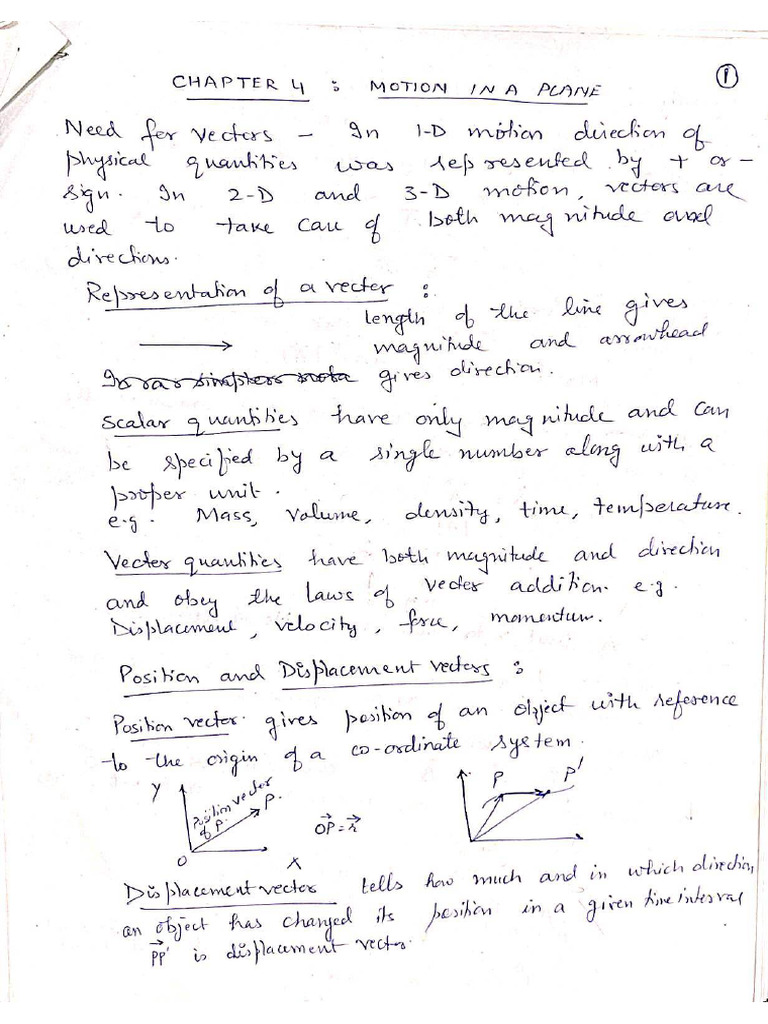 ①
CHAPTER 4 : MOTION IN A PLANE
Need for vectors – In 1-D motion direction of
physical quantities was represented by + or –
sign. In 2-D and 3-D motion, vectors are
used to take care of both magnitude and
directions.
Representation of a vector :
length of the line gives
magnitude and arrowhead
gives direction.
Scalar quantities have only magnitude and can
be specified by a single number along with a
proper unit.
e.g. Mass, volume, density, time, temperature.
Vector quantities have both magnitude and direction
and obey the laws of vector addition. e.g.
Displacement, velocity, force, momentum.
Position and Displacement vectors :
Position vector gives position of an object with reference
to the origin of a co-ordinate system.
Y
Position vector
of P.
P.
O
X
OP⃗ = r⃗
P
P'
Displacement vector tells how much and in which direction
an object has changed its position in a given time interval
PP'⃗ is displacement vector.